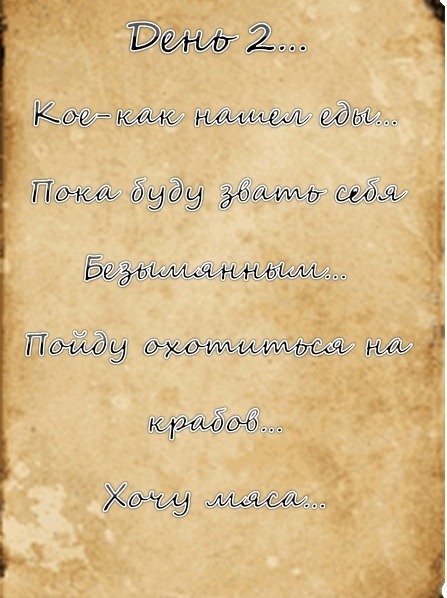 День 2...
Кое-как нашел еды...
Пока буду звать себя
Безымянным...
Пойду охотиться на
крабов...
Хочу мяса...